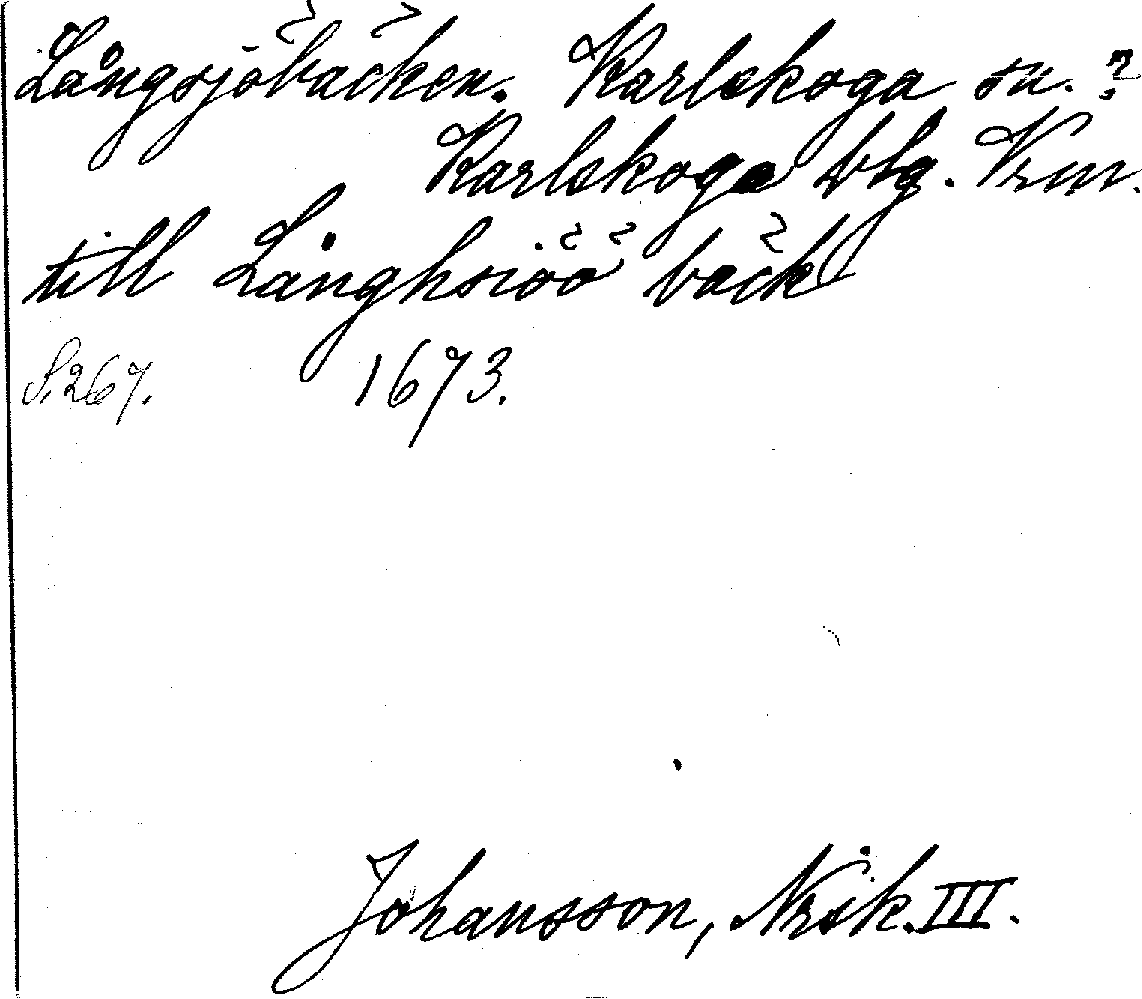 Långsjöbäcken. Karlskoga sn.?
Karlskoga blg. Vrm.
till Långhsiöö bäck
S. 267. 1673.
Johansson, Nrsk. III.